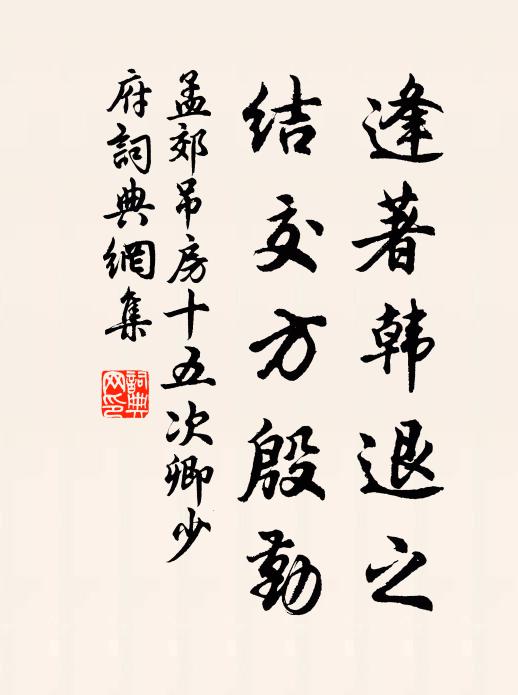 逢著韓退之
結交方殷勤
孟郊吊房十五次卿少
府詞典網集
詞典網印